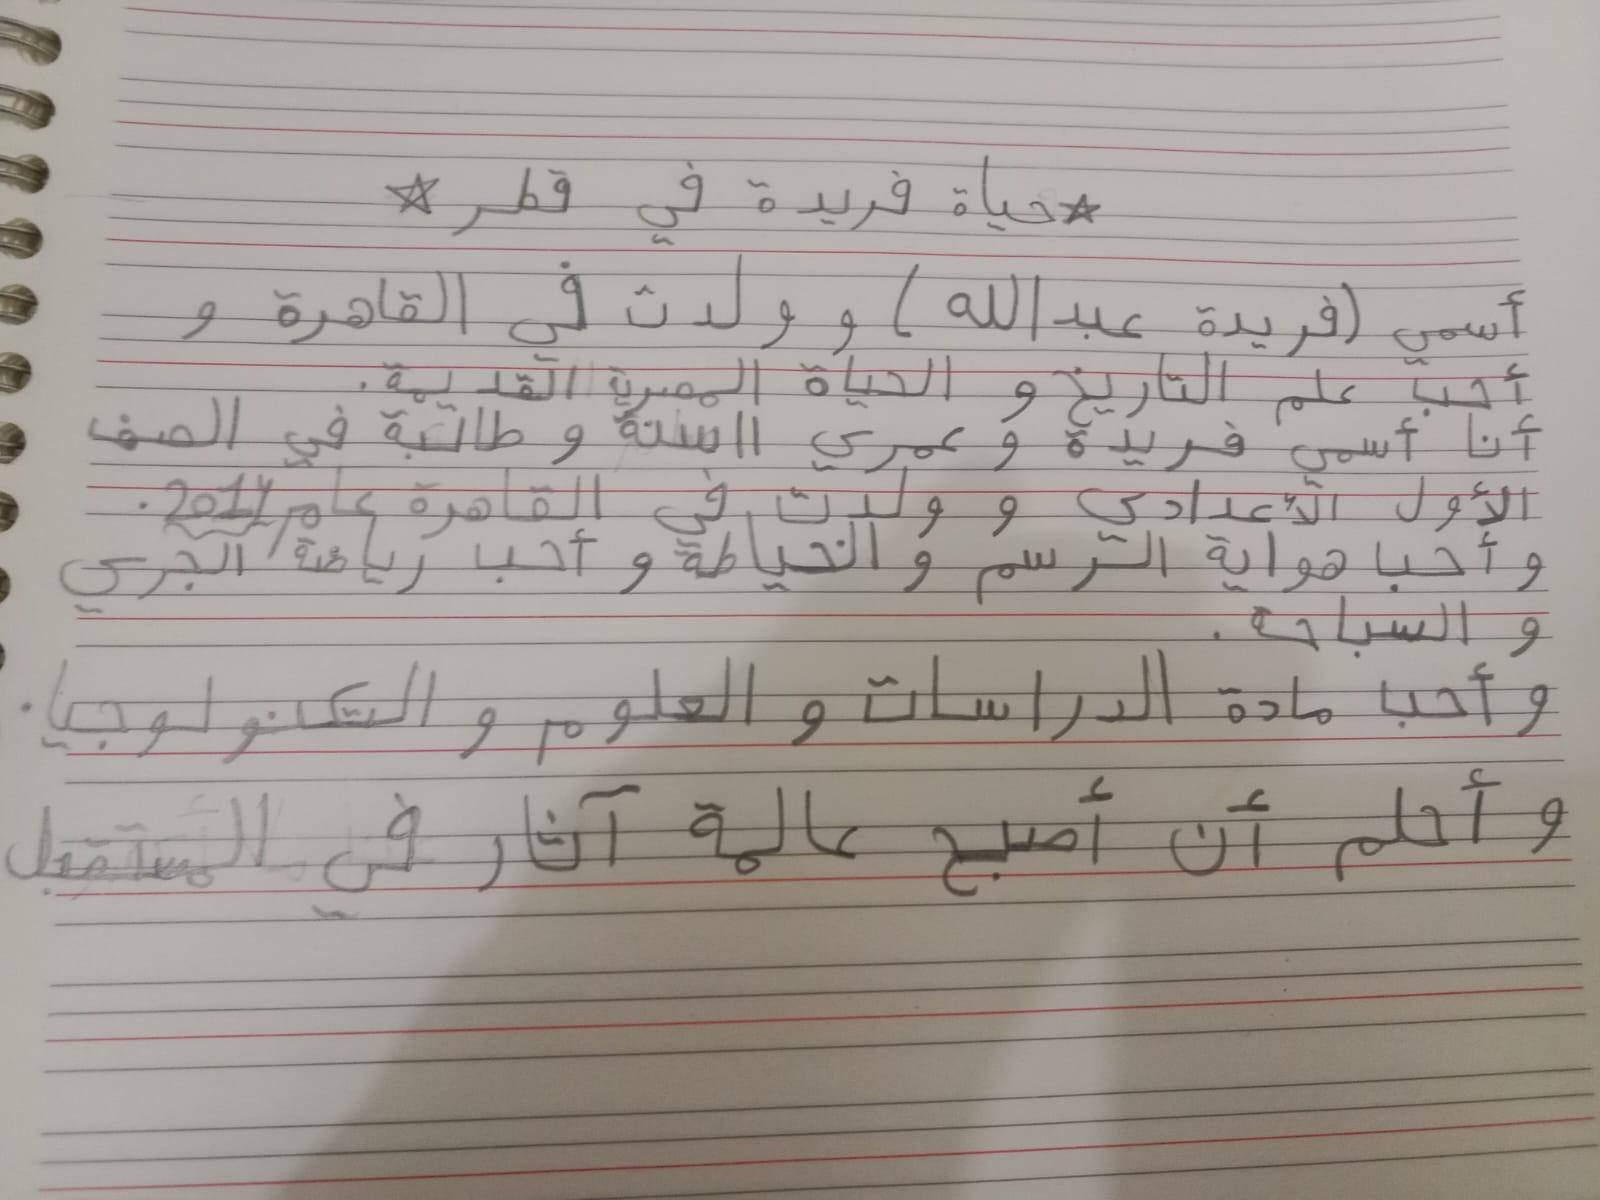 ☆حياة فريدة في قطر ☆
أسمي (فريدة عبدالله) و ولدت في القاهرة و
أحب علم التاريخ و الحياة المصرية القديمة.
أنا أسمى فريدة و عمري 11سنة و طالبة في الصف
الأول الأعدادى و ولدت فى القاهرة عام 2011.
و أحب هواية الرسم و الخياطة و أحب رياضة الجري
و السباحة.
و أحب مادة الدراسات و العلوم و التكنولوجيا.
و أحلم أن أصبح عالمة آثار في المستقبل